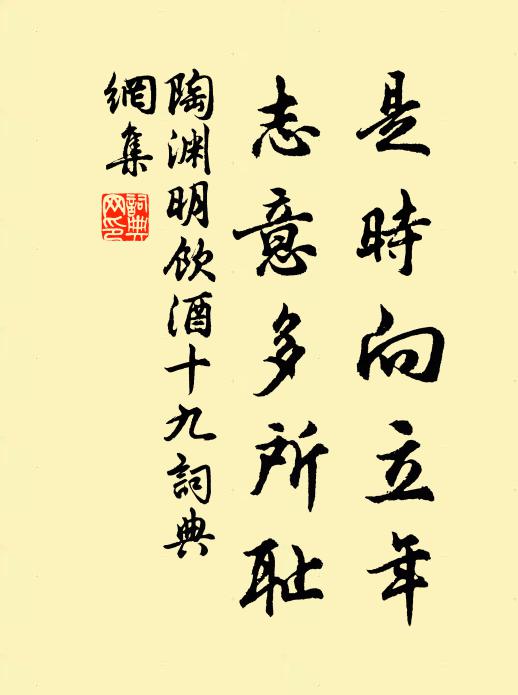 是時向立年
志意多所耻
陶渊明饮酒十九詞典
網集
詞典网印